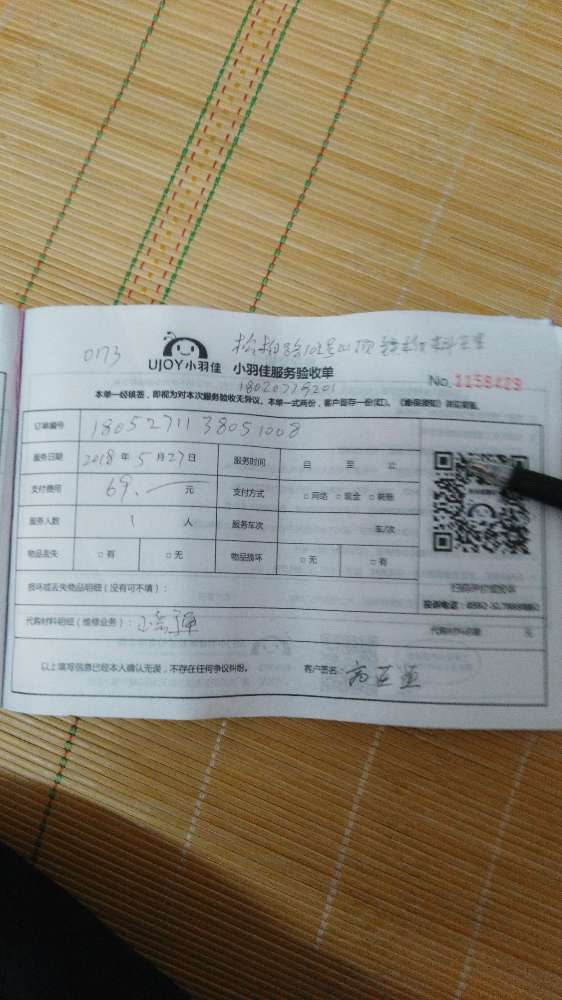 0173
UJOY小羽佳 小羽佳服务验收单
No. 1158429
18020778201
本单一经核签，即视为对本次服务验收无异议。本单一式两份，客户留存一份(红)。
订单编号 1805271138051008
服务日期 2018 年 5 月 27 日 服务时间 自 至 止
支付费用 69. 元 支付方式 □ 网络 □ 现金 □ 转账
服务人数 1 人 服务车次 车/次
物品丢失 □ 有 □ 无 物品损坏 □ 无 □ 有
损坏或丢失物品明细（没有可不填）：
投诉电话：
代购材料明细（维修业务）： 代购材料金额 元
以上填写信息已经本人确认无误，不存在任何争议纠纷。 客户签名：